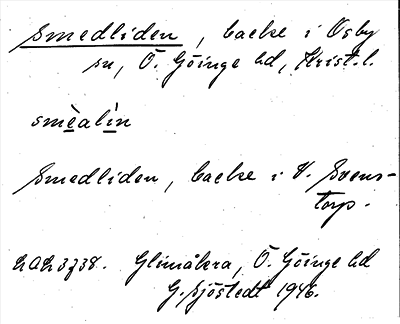 Smedliden, backe i Osby
sn, Ö. Göinge hd, Krist.l.
smèalìn
Smedliden, backe i V. Svens-
torp.
Glimåkra, Ö. Göinge hd
G. Sjöstedt 1946.